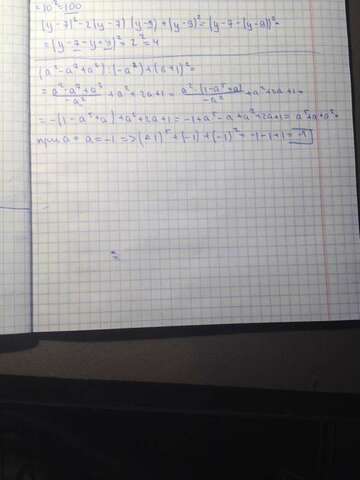 =10²=100
(y-7)²-2(y-7)(y-9)+(y-9)²=(y-7-(y-9))²=
=(y-7-y+9)²=2²=4
(a²-a⁷+a³):(-a²)+(a+1)²=
=a²-a⁷+a³/-a²+a²+2a+1=a²·(1-a⁵+a)/-a²+a²+2a+1=
=-(1-a⁵+a)+a²+2a+1=-1+a⁵-a+a²+2a+1=a⁵+a+a²=
при a=-1=>(-1)⁵+(-1)+(-1)²=-1-1+1=-1